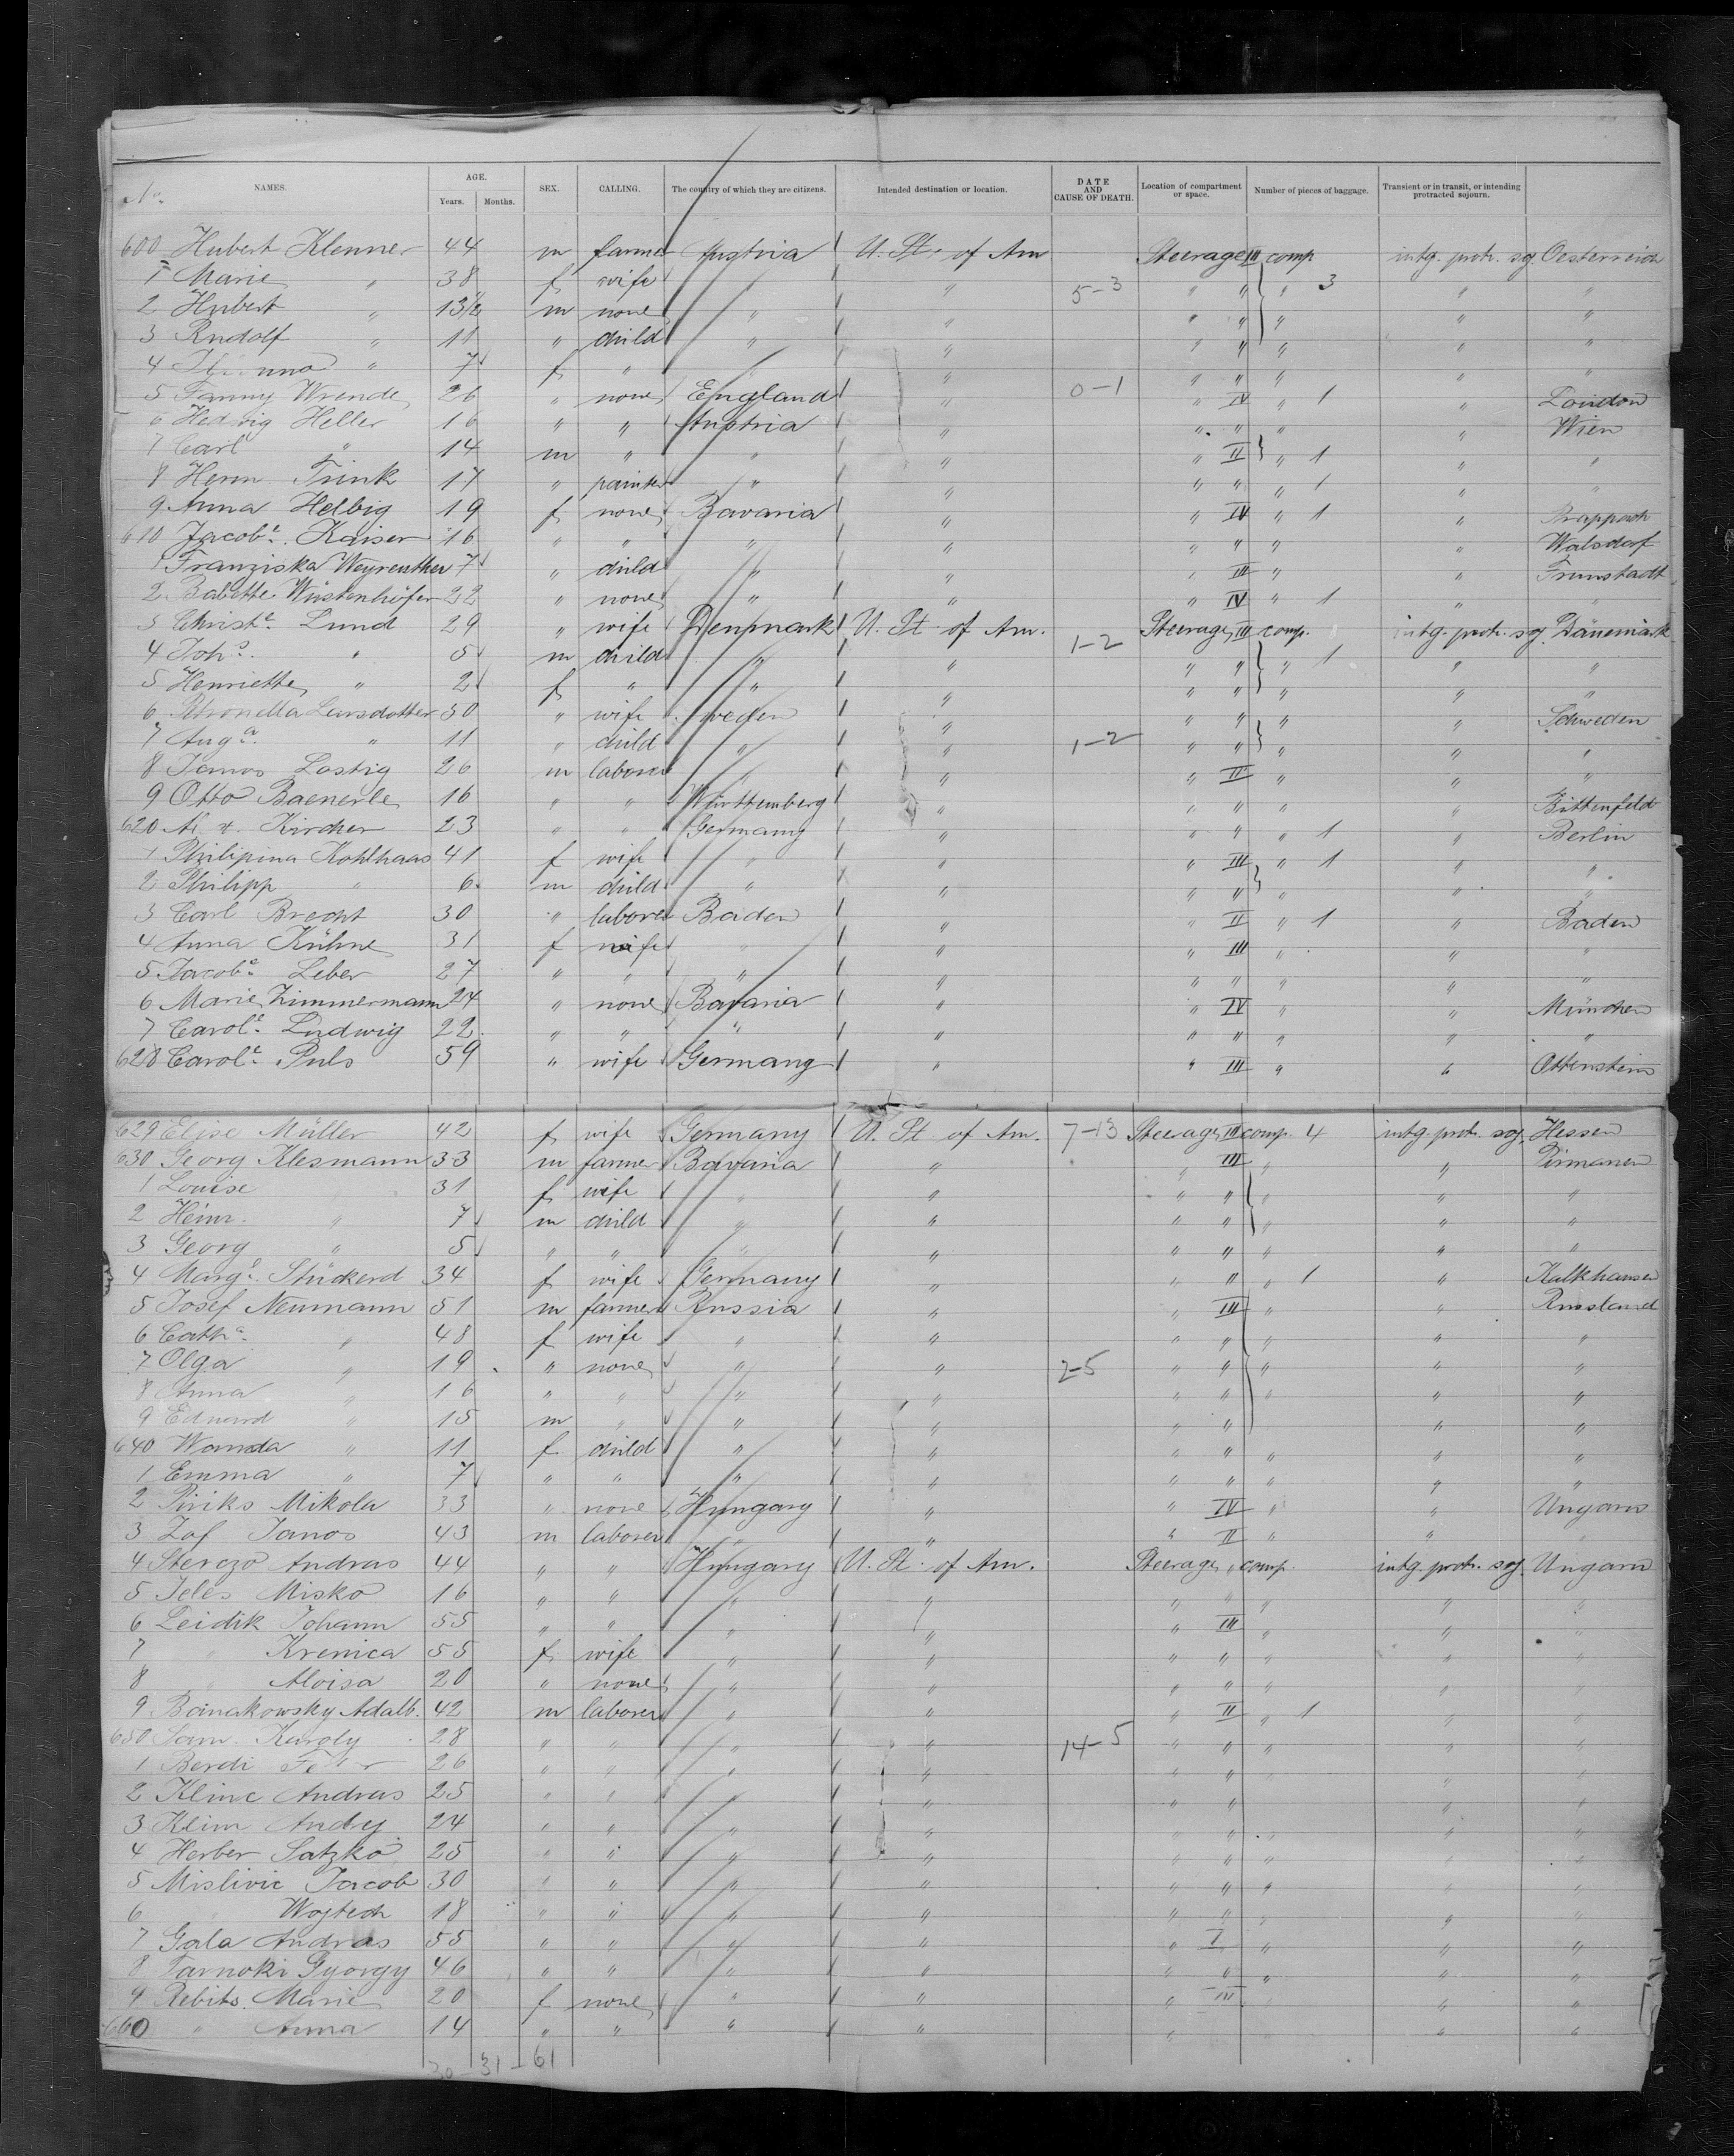 No. NAMES. AGE. Years. Months. SEX. CALLING. The country of which they are citizens. Intended destination or location. DATE AND CAUSE OF DEATH. Location of compartment or space. Number of pieces of baggage. Transient or in transit, or intending protracted sojourn.
600 Hubert Klenner 44 m farmer Austria U. St. of Am Steerage III comp intg. protr. soj. Oesterreich
1 Marie " 38 f wife " " 5-3 " " " 3 " "
2 Hubert " 13 1/2 m none " " " " " " "
3 Rudolf " 11 " child " " " " " " "
4 " 7 f " " " " " " " "
5 Fanny Wrende 26 " none England " 0-1 " IV " 1 " London
6 Hedwig Heller 16 " " Austria " " " " " Wien
7 Carl " 14 m " " " " II " 1 " "
8 Herm. Trink 17 " painter " " " " " 1 " "
9 Anna Helbig 19 f none Bavaria " " IV " 1 "
610 Jacobe. Kaiser 16 " " " " " " " " Walsdorf
1 Franziska Weyreuther 7 " child " " " III " " Trunstadt
2 Babette Wüstenhöfer 22 " none " " " IV " 1 " "
3 Christe. Lund 29 " wife Denmark U. St. of Am. 1-2 Steerage III comp. intg. protr. soj. Dänemark
4 Johs. " 5 m child " " " " " 1 " "
5 Henriette " 2 f " " " " " " " "
6 Petronella Larsdotter 30 " wife Sweden " " " " " Schweden
7 Auga. " 11 " child " " 1-2 " " " " "
8 Janos Lastig 26 m laborer " " " II " " "
9 Otto Baenerle 16 " " Württemberg " " " " " Bittenfeld
620 Kircher 23 " " Germany " " " " 1 " Berlin
1 Philipina Kohlhaas 41 f wife " " " III " 1 " "
2 Philipp " 6 m child " " " " " " "
3 Carl Brecht 30 " laborer Baden " " II " 1 " Baden
4 Anna Kühne 31 f wife " " " III " " "
5 Jacobe. Leber 27 " " " " " " " " "
6 Marie Zimmermann 24 " none Bavaria " " IV " " München
7 Carole. Ludwig 22 " " " " " " " " "
628 Carole. Puls 59 " wife Germany " " III " " Ottenstein
629 Elise Müller 42 f wife Germany U. St. of Am. 7-13 Steerage III comp. 4 intg. protr. soj. Hessen
630 Georg Klesmann 33 m farmer Bavaria " " III " "
1 Louise 31 f wife " " " " " " "
2 Heinr. " 7 m child " " " " " " "
3 Georg " 5 " " " " " " " " "
4 Marge. Stückerd 34 f wife Germany " " " " 1 " Kalkhausen
5 Josef Neumann 51 m farmer Russia " " III " " Russland
6 Catha. " 48 f wife " " " " " " "
7 Olga " 19 " none " " 2-5 " " " " "
8 Anna " 16 " " " " " " " " "
9 Eduard " 15 m " " " " " " "
640 Wanda " 11 f child " " " " " " "
1 Emma " 7 " " " " " " " " "
2 Piriks Mikola 33 " none Hungary " " IV " " Ungarn
3 Zaf Janos 43 m laborer " " " II " " "
4 Sterczo Andras 44 " " Hungary U. St. of Am. Steerage " comp. intg. protr. soj. Ungarn
5 Jeles Misko 16 " " " " " " " " "
6 Leidik Johann 55 " " " " " III " " "
7 " Krenica 55 f wife " " " " " " "
8 " Aloisa 20 " none " " " " " " "
9 Boinakowsky Adalb. 42 m laborer " " " II " 1 " "
650 Sam. Karoly 28 " " " " 14-5 " " " " "
1 Berdi 26 " " " " " " " " "
2 Klinc Andras 25 " " " " " " " "
3 Klim Andry 24 " " " " " " " " "
4 Herber Satzko 25 " " " " " " " " "
5 Mislivic Jacob 30 " " " " " " " " "
6 " Wojtech 18 " " " " " " " " "
7 Gala Andras 55 " " " " " I " " "
8 Tarnoki Gyorgy 46 " " " " " " " " "
9 Rebits Marie 20 f none " " " III " " "
660 " Anna 14 " " " " " " "
30 - 31 - 61